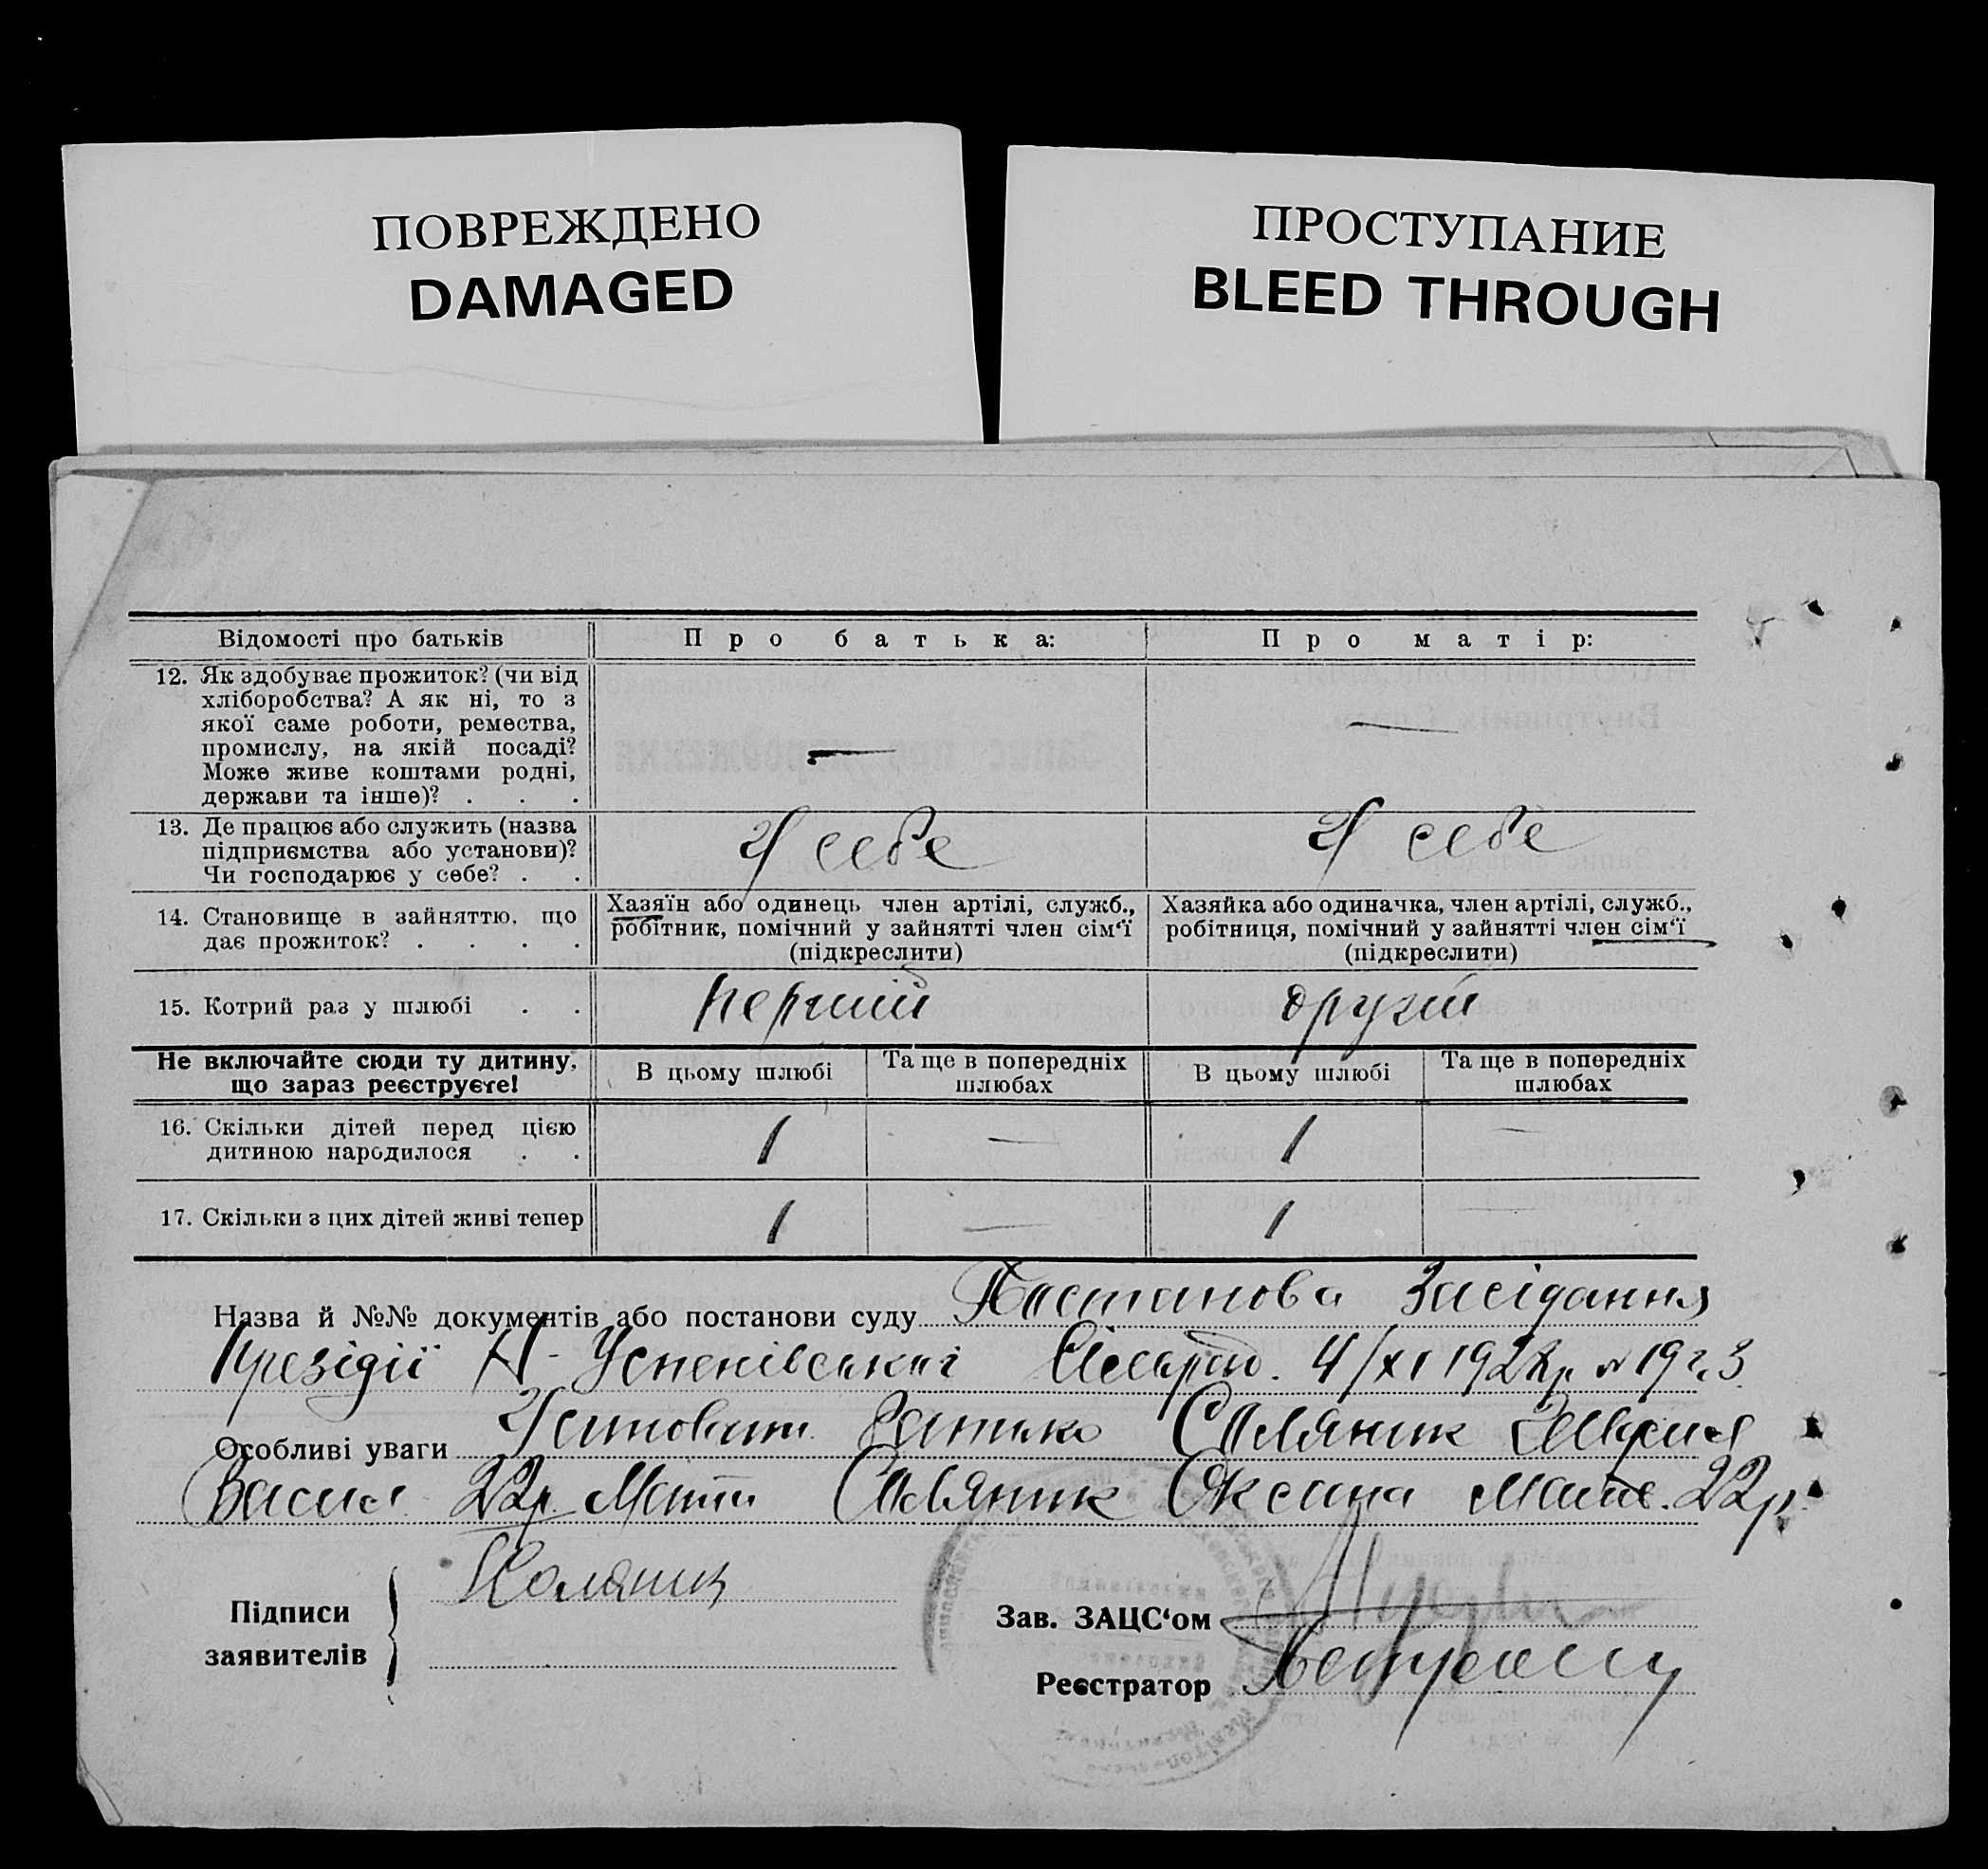 ПОВРЕЖДЕНО
DAMAGED
ПРОСТУПАНИЕ
BLEED THROUGH
Відомості про батьків
Про батька:
Про матір:
12. Як здобуває прожиток? (чи від
хліборобства? А як ні, то з
якої саме роботи, ремества,
промислу, на якій посаді?
Може живе коштами родні,
держави та інше)? . . .
—
—
13. Де працює або служить (назва
підприємства або установи)?
Чи господарює у себе? . .
У себе
У себе
14. Становище в зайняттю, що
дає прожиток? . . . .
Хазяїн або одинець член артілі, служб.,
робітник, помічний у зайнятті член сім‘ї
(підкреслити)
Хазяйка або одиначка, член артілі, служб.,
робітниця, помічний у зайнятті член сім‘ї
(підкреслити)
15. Котрий раз у шлюбі . .
перший
другий
Не включайте сюди ту дитину,
що зараз реєструєте!
В цьому шлюбі
Та ще в попередніх
шлюбах
В цьому шлюбі
Та ще в попередніх
шлюбах
16. Скільки дітей перед цією
дитиною народилося . .
1 — 1 —
17. Скільки з цих дітей живі тепер
1 — 1 —
Назва й №№ документів або постанови суду Постанова Засідання
Президії Н-Успенівської
Особливі уваги Батько
22р. Мати Оксана 22р.
Підписи
заявителів
Зав. ЗАЦС‘ом
Реєстратор